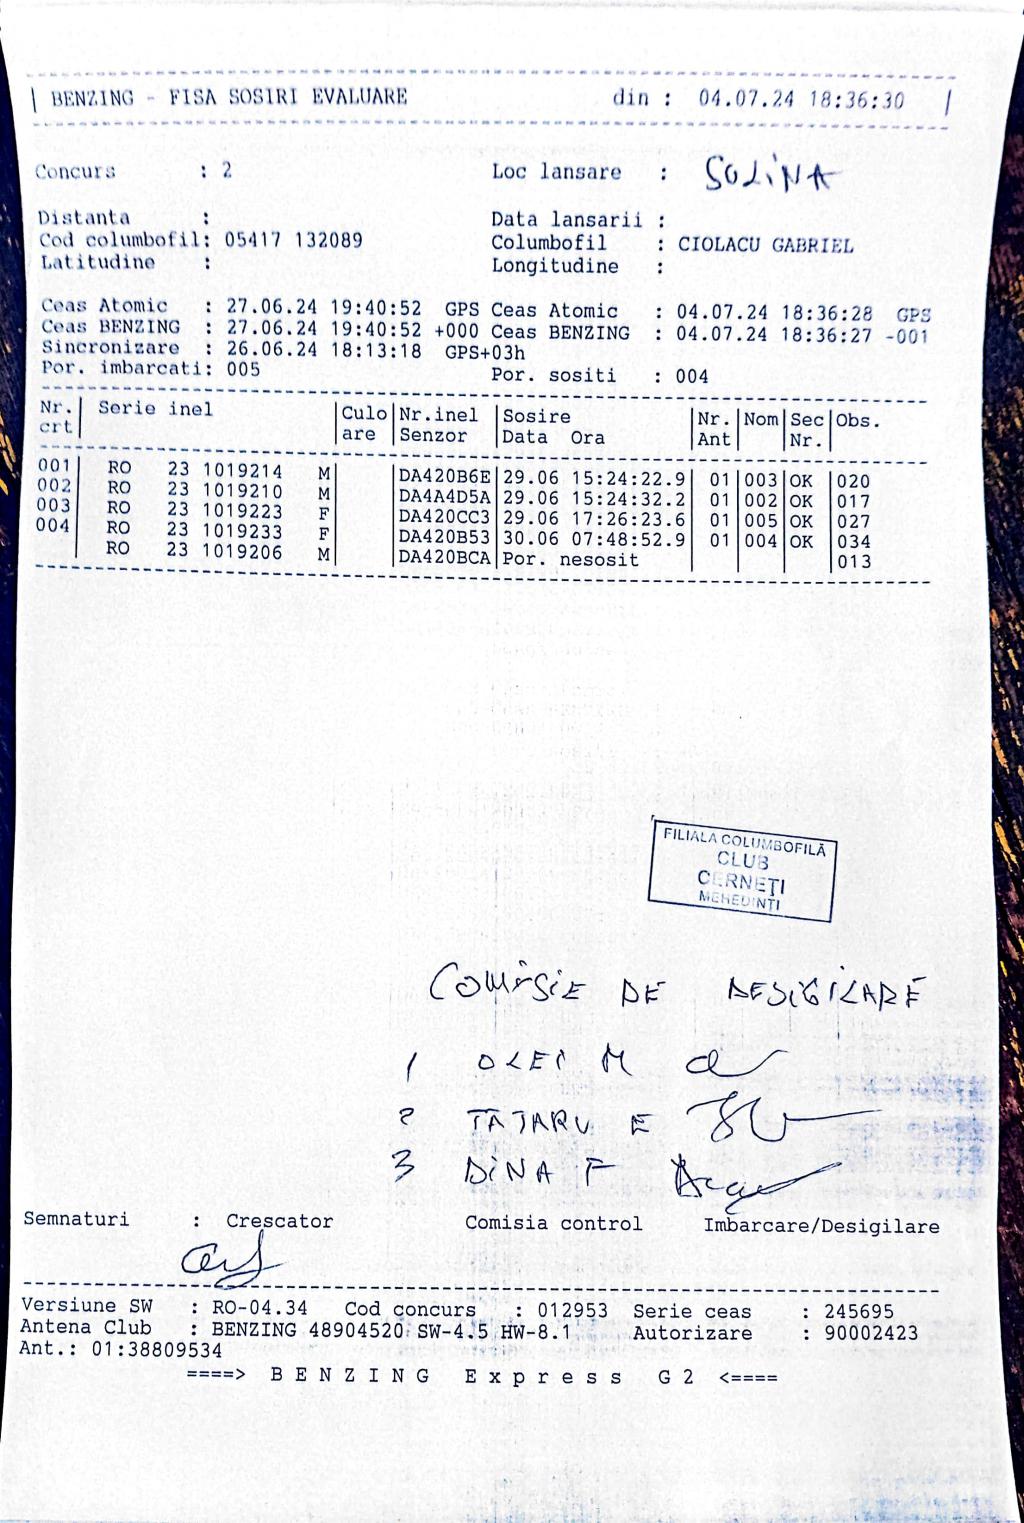 | BENZING - FISA SOSIRI EVALUARE din : 04.07.24 18:36:30 |
Concurs : 2 Loc lansare : SOLINA
Distanta : Data lansarii :
Cod columbofil: 05417 132089 Columbofil : CIOLACU GABRIEL
Latitudine : Longitudine :
Ceas Atomic : 27.06.24 19:40:52 GPS Ceas Atomic : 04.07.24 18:36:28 GPS
Ceas BENZING : 27.06.24 19:40:52 +000 Ceas BENZING : 04.07.24 18:36:27 -001
Sincronizare : 26.06.24 18:13:18 GPS+03h
Por. imbarcati: 005 Por. sositi : 004
Nr. | Serie inel | Culo | Nr.inel | Sosire | Nr. | Nom | Sec | Obs.
crt | | are | Senzor | Data Ora | Ant | | Nr. |
001 | RO 23 1019214 M | | DA420B6E | 29.06 15:24:22.9 | 01 | 003 | OK | 020
002 | RO 23 1019210 M | | DA4A4D5A | 29.06 15:24:32.2 | 01 | 002 | OK | 017
003 | RO 23 1019223 F | | DA420CC3 | 29.06 17:26:23.6 | 01 | 005 | OK | 027
004 | RO 23 1019233 F | | DA420B53 | 30.06 07:48:52.9 | 01 | 004 | OK | 034
RO 23 1019206 M | | DA420BCA | Por. nesosit | | | | 013
FILIALA COLUMBOFILĂ
CLUB
CERNEȚI
MEHEDINȚI
COMISIE DE DESIGILARE
1 OLEI M
2 TATARU E
3 DINA F
Semnaturi : Crescator Comisia control Imbarcare/Desigilare
Versiune SW : RO-04.34 Cod concurs : 012953 Serie ceas : 245695
Antena Club : BENZING 48904520 SW-4.5 HW-8.1 Autorizare : 90002423
Ant.: 01:38809534
====> B E N Z I N G E x p r e s s G 2 <====